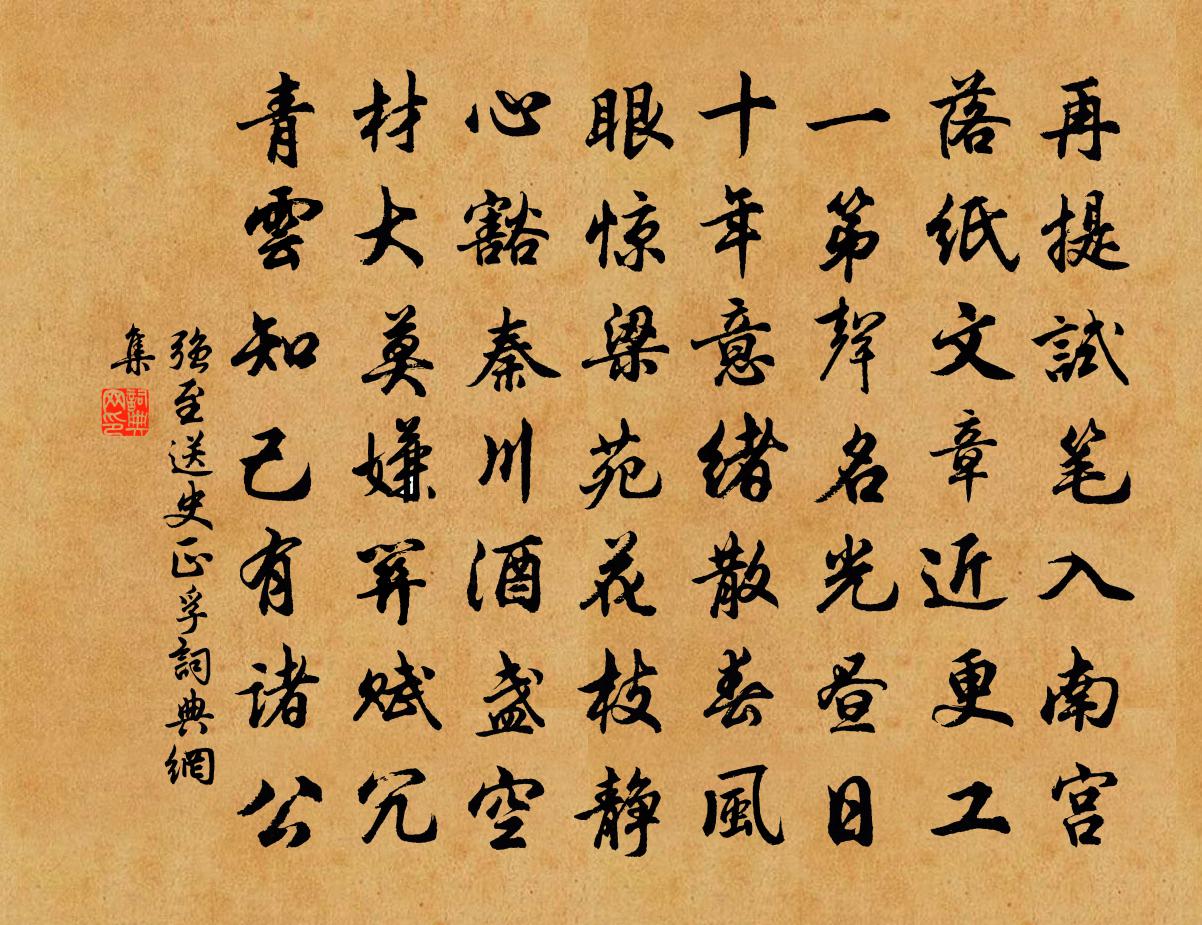 再提試笔入南宫
落紙文章近更工
一第聲名光昼日
十年意緒散春風
眼惊梁苑花枝静
心豁秦川酒盏空
材大莫嫌筭赋冗
青雲知己有諸公
强至送史正孚詞典網
集
詞典网印